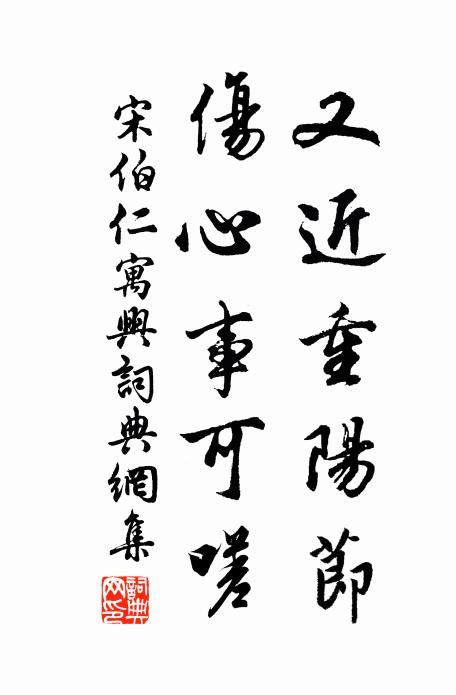 又近重陽節
傷心事可嗟
宋伯仁寓興詞典網集
詞典网印